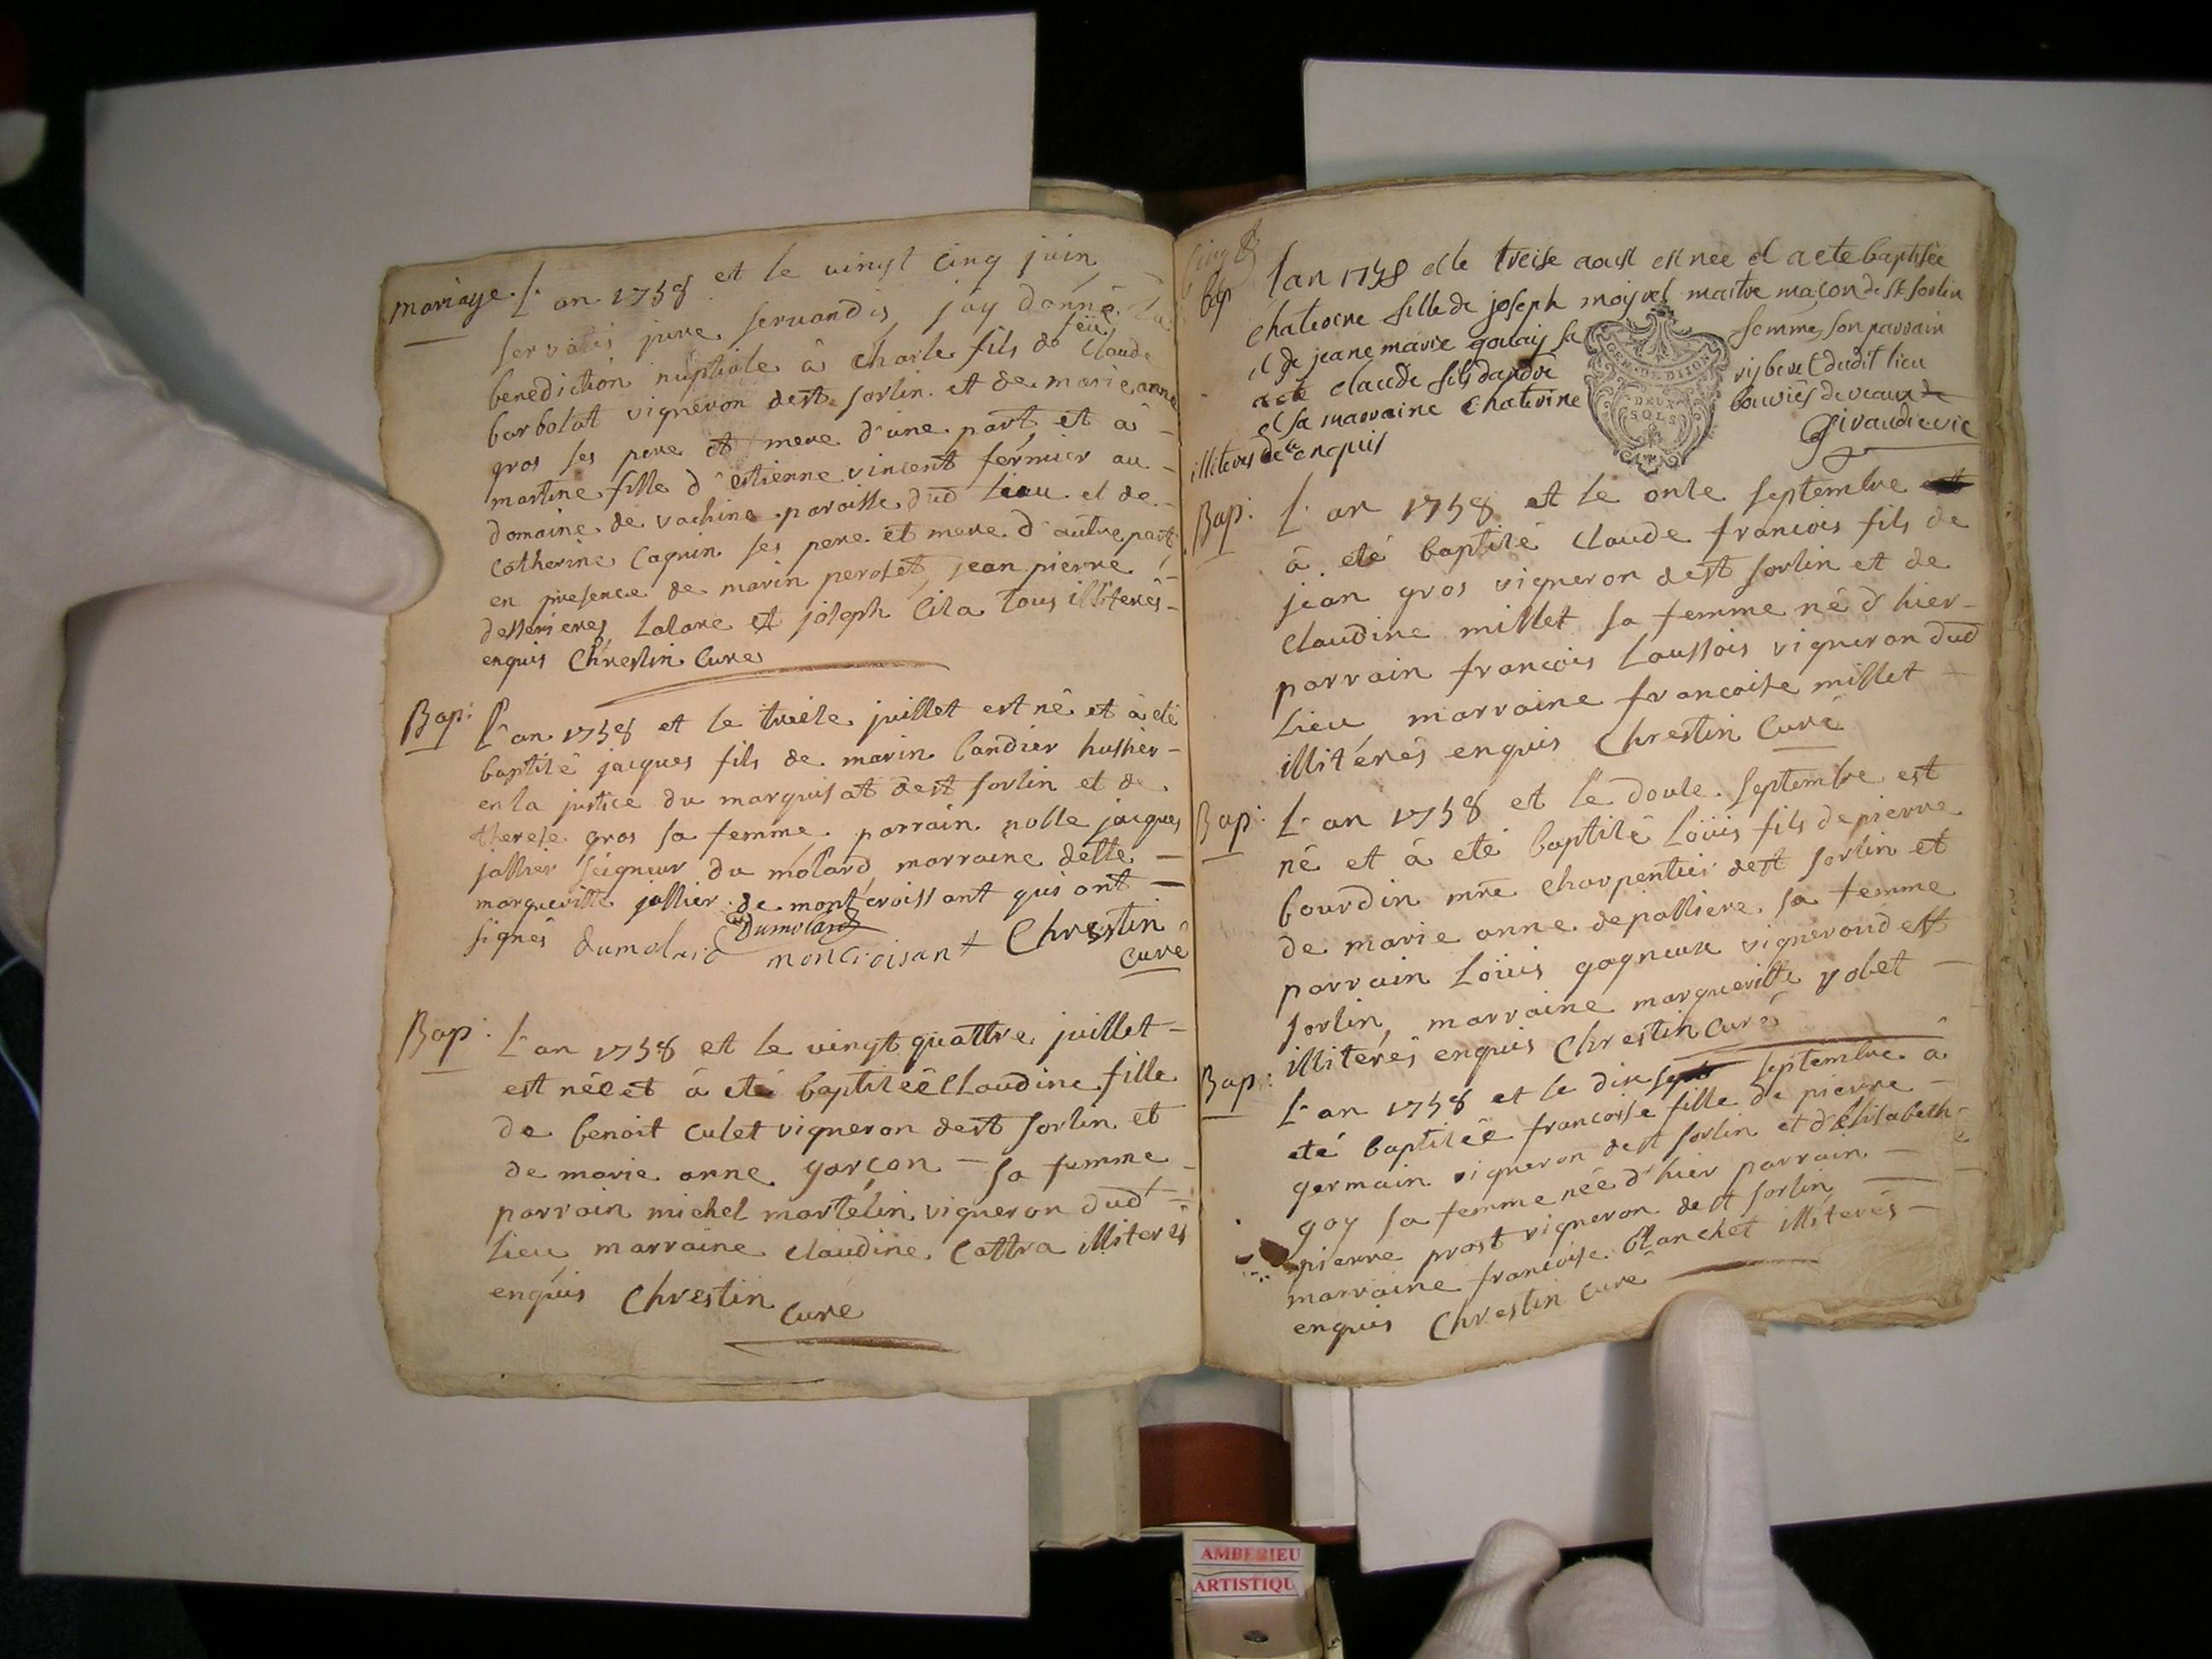 mariage. L'an 1758 et le vingt cinq juin
servatis jure servandis, jay donné la
benediction nuptiale à Charle fils de feu Claude
barbolat vigneron dest. sorlin et de marie anne
gros ses pere et mere d'une part et à
martine fille d'estienne vincent fermier au
domaine de vachine paroisse dud lieu et de
catherine caquin ses pere et mere d'autre part
en presence de marin peroset, jean pierre
desserieres, et joseph Cila tous illiterés
enquis Chrestin Curé
Bap: L'an 1758 et le treise juillet est né et à eté
baptisé jacques fils de marin bandier hussier
en la justice du marquisat dest sorlin et de
therese gros sa femme parrain noble jacques
jallier seigneur du molard, marraine delle
margueritte jallier de montcroissant qui ont
signés dumolard Dumolard moncroisant Chrestin
curé
Bap: L'an 1758 et le vingt quattre juillet
est née et à eté baptisée Claudine fille
de benoit culet vigneron dest sorlin et
de marie anne garçon sa femme
parrain michel martelin vigneron dud
lieu marraine claudine Cottra illiterés
enquis Chrestin
curé
bap lan 1758 et le treise aoust est nee et a ete baptisée
chaterine fille de joseph moyret maitre maçon de st sorlin
et de jeane marie goulay sa femme, son parrain
a eté claude fils dandré rijberet dudit lieu
et sa marraine Chaterine bouvier de veaux
illiteres de ce enquis Giraud vic
GEN. DE DIJON
DEUX
SOLS
Bap: L'an 1758 et le onse septembre
à eté baptisé claude francois fils de
jean gros vigneron dest sorlin et de
claudine millet sa femme né d'hier
parrain francois Laussois vigneron dud
lieu, marraine francoise millet
illiterés enquis Chrestin Curé
Bap: L'an 1758 et le douse septembre est
né et à eté baptisé Loüis fils de pierre
bourdin mre charpentier dest sorlin et
de marie anne depalliere sa femme
parrain Loüis gagneux vigneron dest
sorlin, marraine margueritte yolet
illiterés enquis Chrestin Curé
Bap: L'an 1758 et le dix sept septembre à
eté baptisée francoise fille de pierre
germain vigneron dest sorlin et d'elisabeth
goy sa femme née d'hier parrain
pierre prost vigneron dest sorlin
marraine francoise blanchet illiterés
enquis Chrestin Curé
AMBERIEU
ARTISTIQU